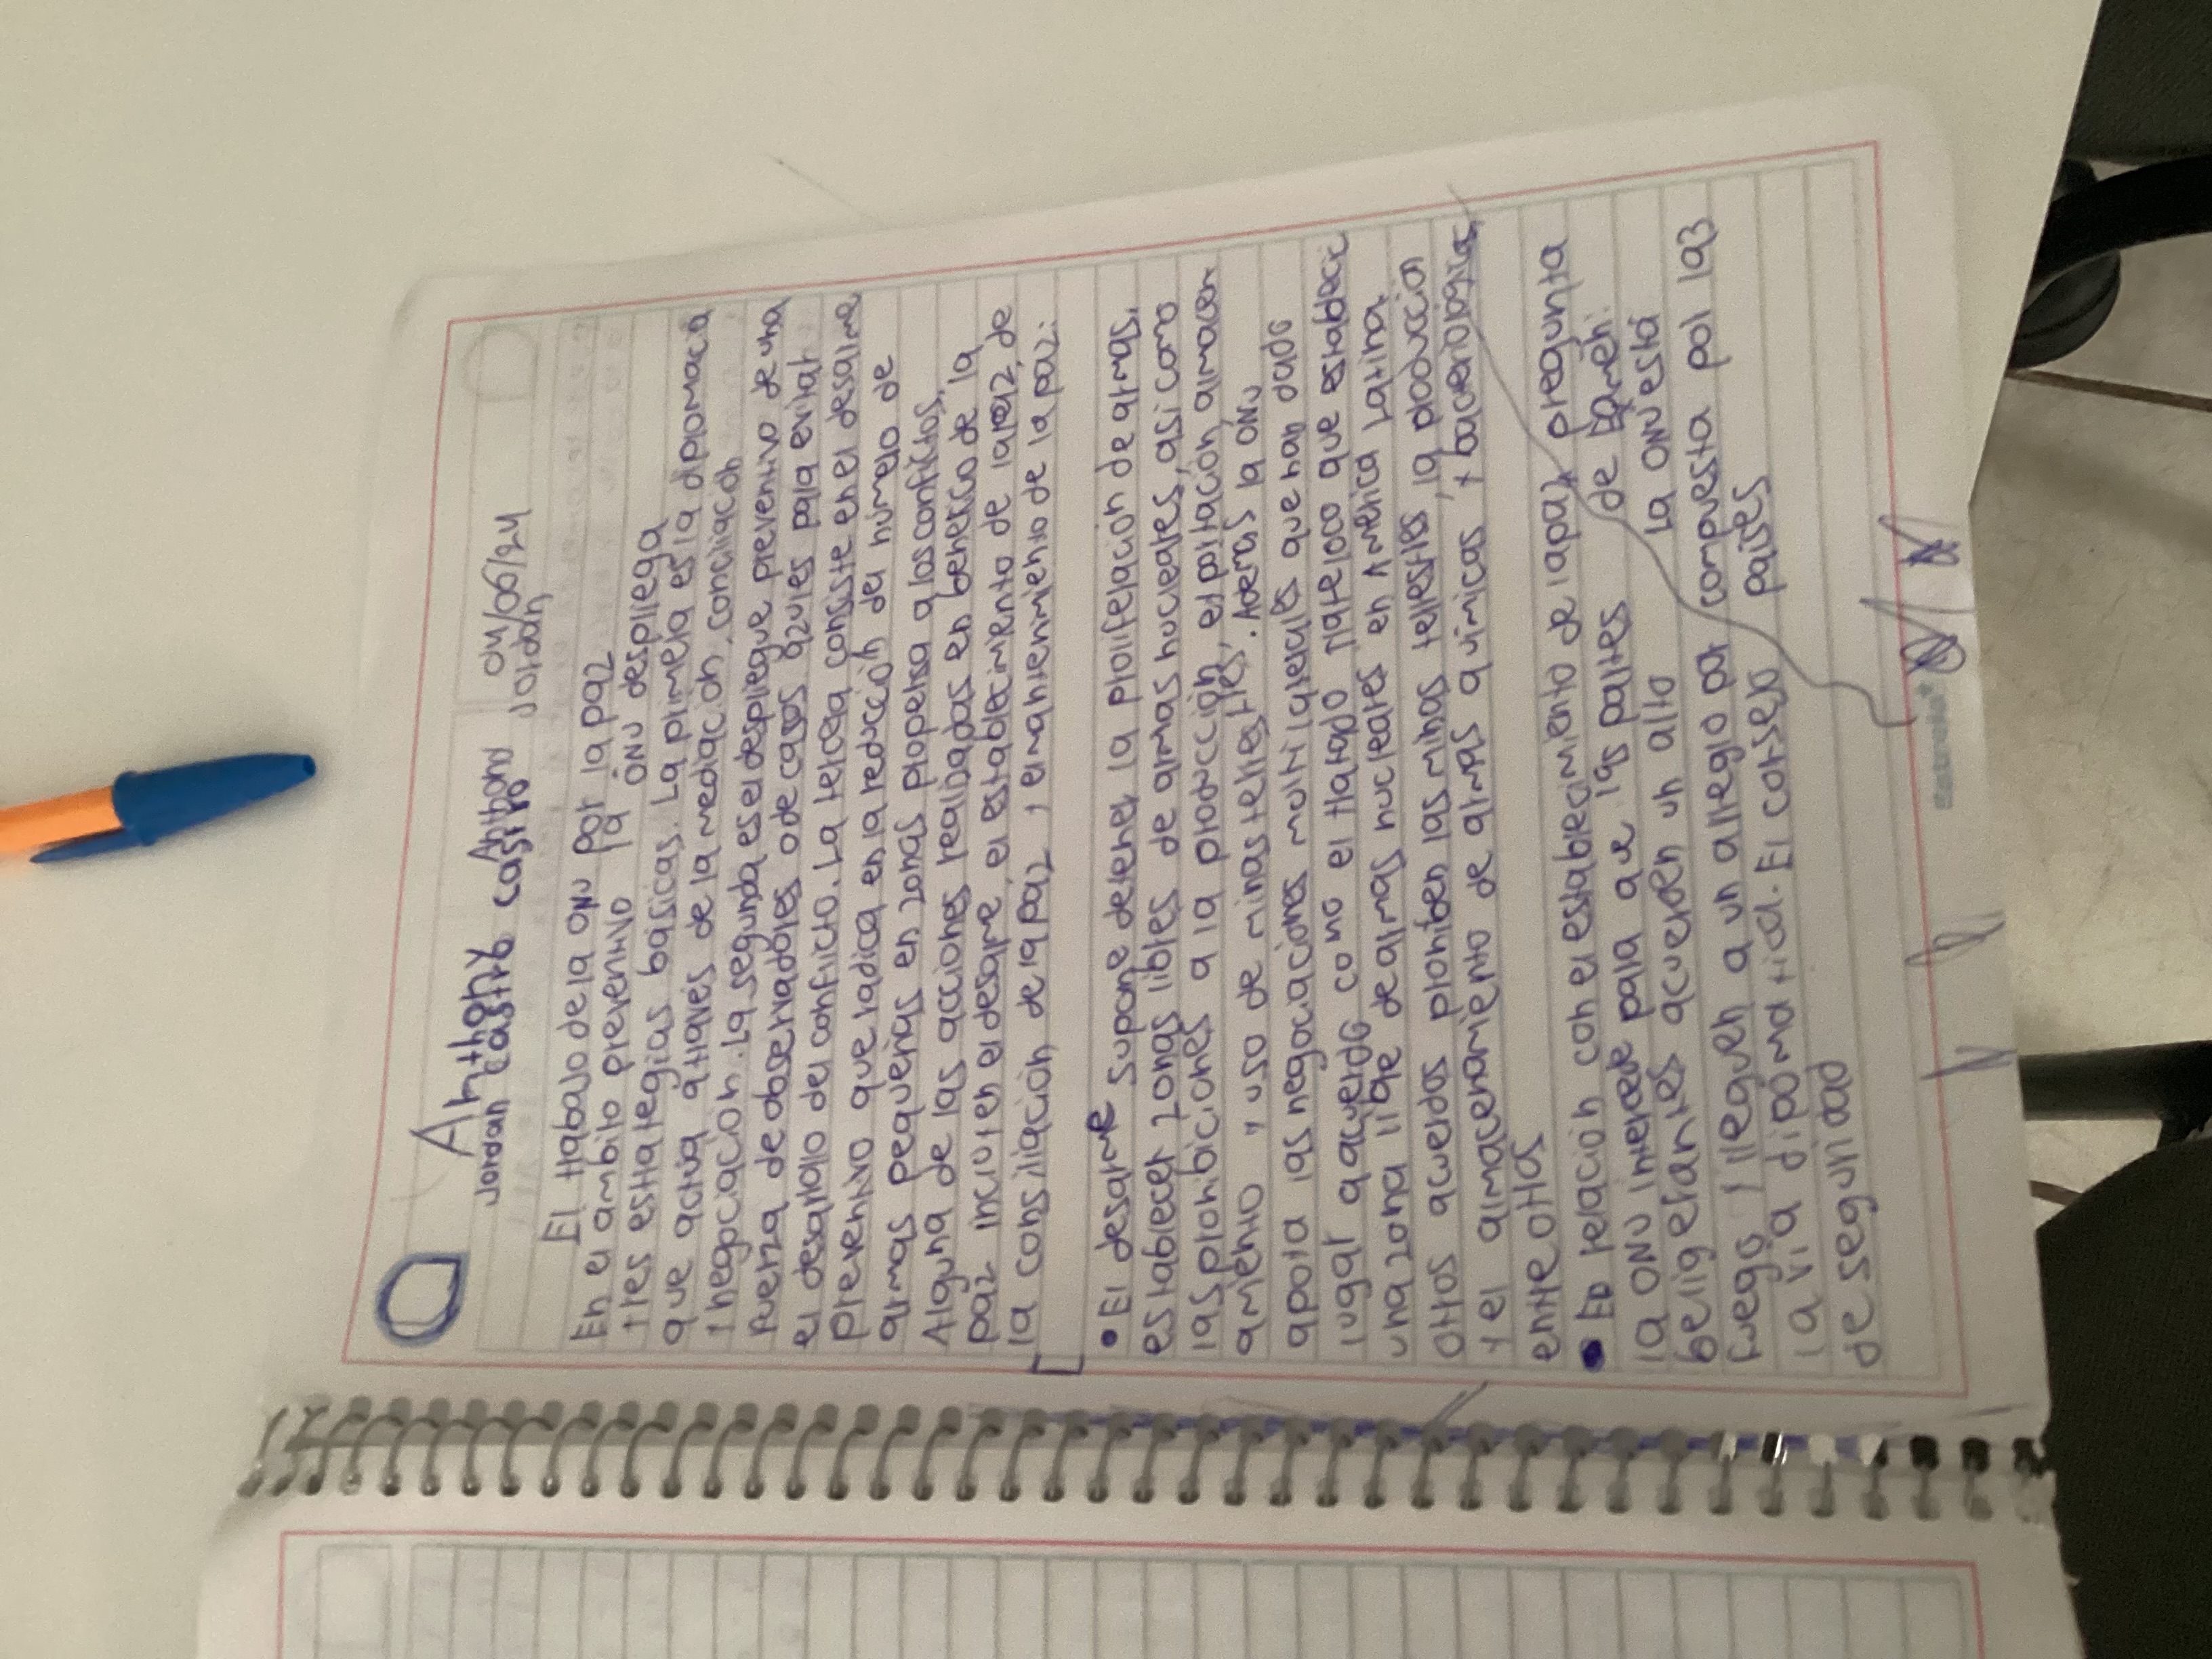 Anthony Anthony 04/06/24
Jordan castro castro Jordan
El trabajo de la ONU por la paz
En el ambito preventivo la ONU despliega
tres estrategias basicas. La primera es la diplomacia
que actúa através de la mediación, conciliación
y negociación. La segunda es el despliegue preventivo de una
fuerza de observadores o de cascos azules para evitar
el desarrollo del conflicto. La tercera consiste en el desarme
preventivo que radica en la reducción del número de
armas pequeñas en zonas propensa a los conflictos.
Alguna de las acciones realizadas en beneficio de la
paz incluyen el desarme, el establecimiento de la paz, de
la consiliación de la paz y el mantenimiento de la paz:
• El desarme supone detener la proliferación de armas,
establecer zonas libres de armas nucleares, asi como
las prohibiciones a la producción, exportación almacen
amiento y uso de minas terrestres. Ademas la ONU
apoya las negociaciones multilaterales que han dado
lugar a acuerdo como el tratado Tlatelolco que estableci
una zona libre de armas nucleares en America Latina
otros acuerdos prohiben las minas terrestres, la producción
y el almacenamiento de armas quimicas y bacteriologicas,
entre otras
• En relación con el establecimiento de la paz pregunta
la ONU intercede para que las partes de examen:
beligerantes acuerden un alto La ONU está
fuego y lleguen a un arreglo por compuesta por 193
la vía diplomatica. El consejo paises
de seguridad